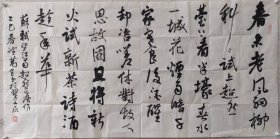 春未老風細柳
斜斜試上超然
臺上看半壕春水
一城花煙雨暗千
家寒食後酒醒
却咨嗟休對故人
思故國且將新
火試新茶詩酒
趁年華
蘇軾望江南超然臺作
乙巳春